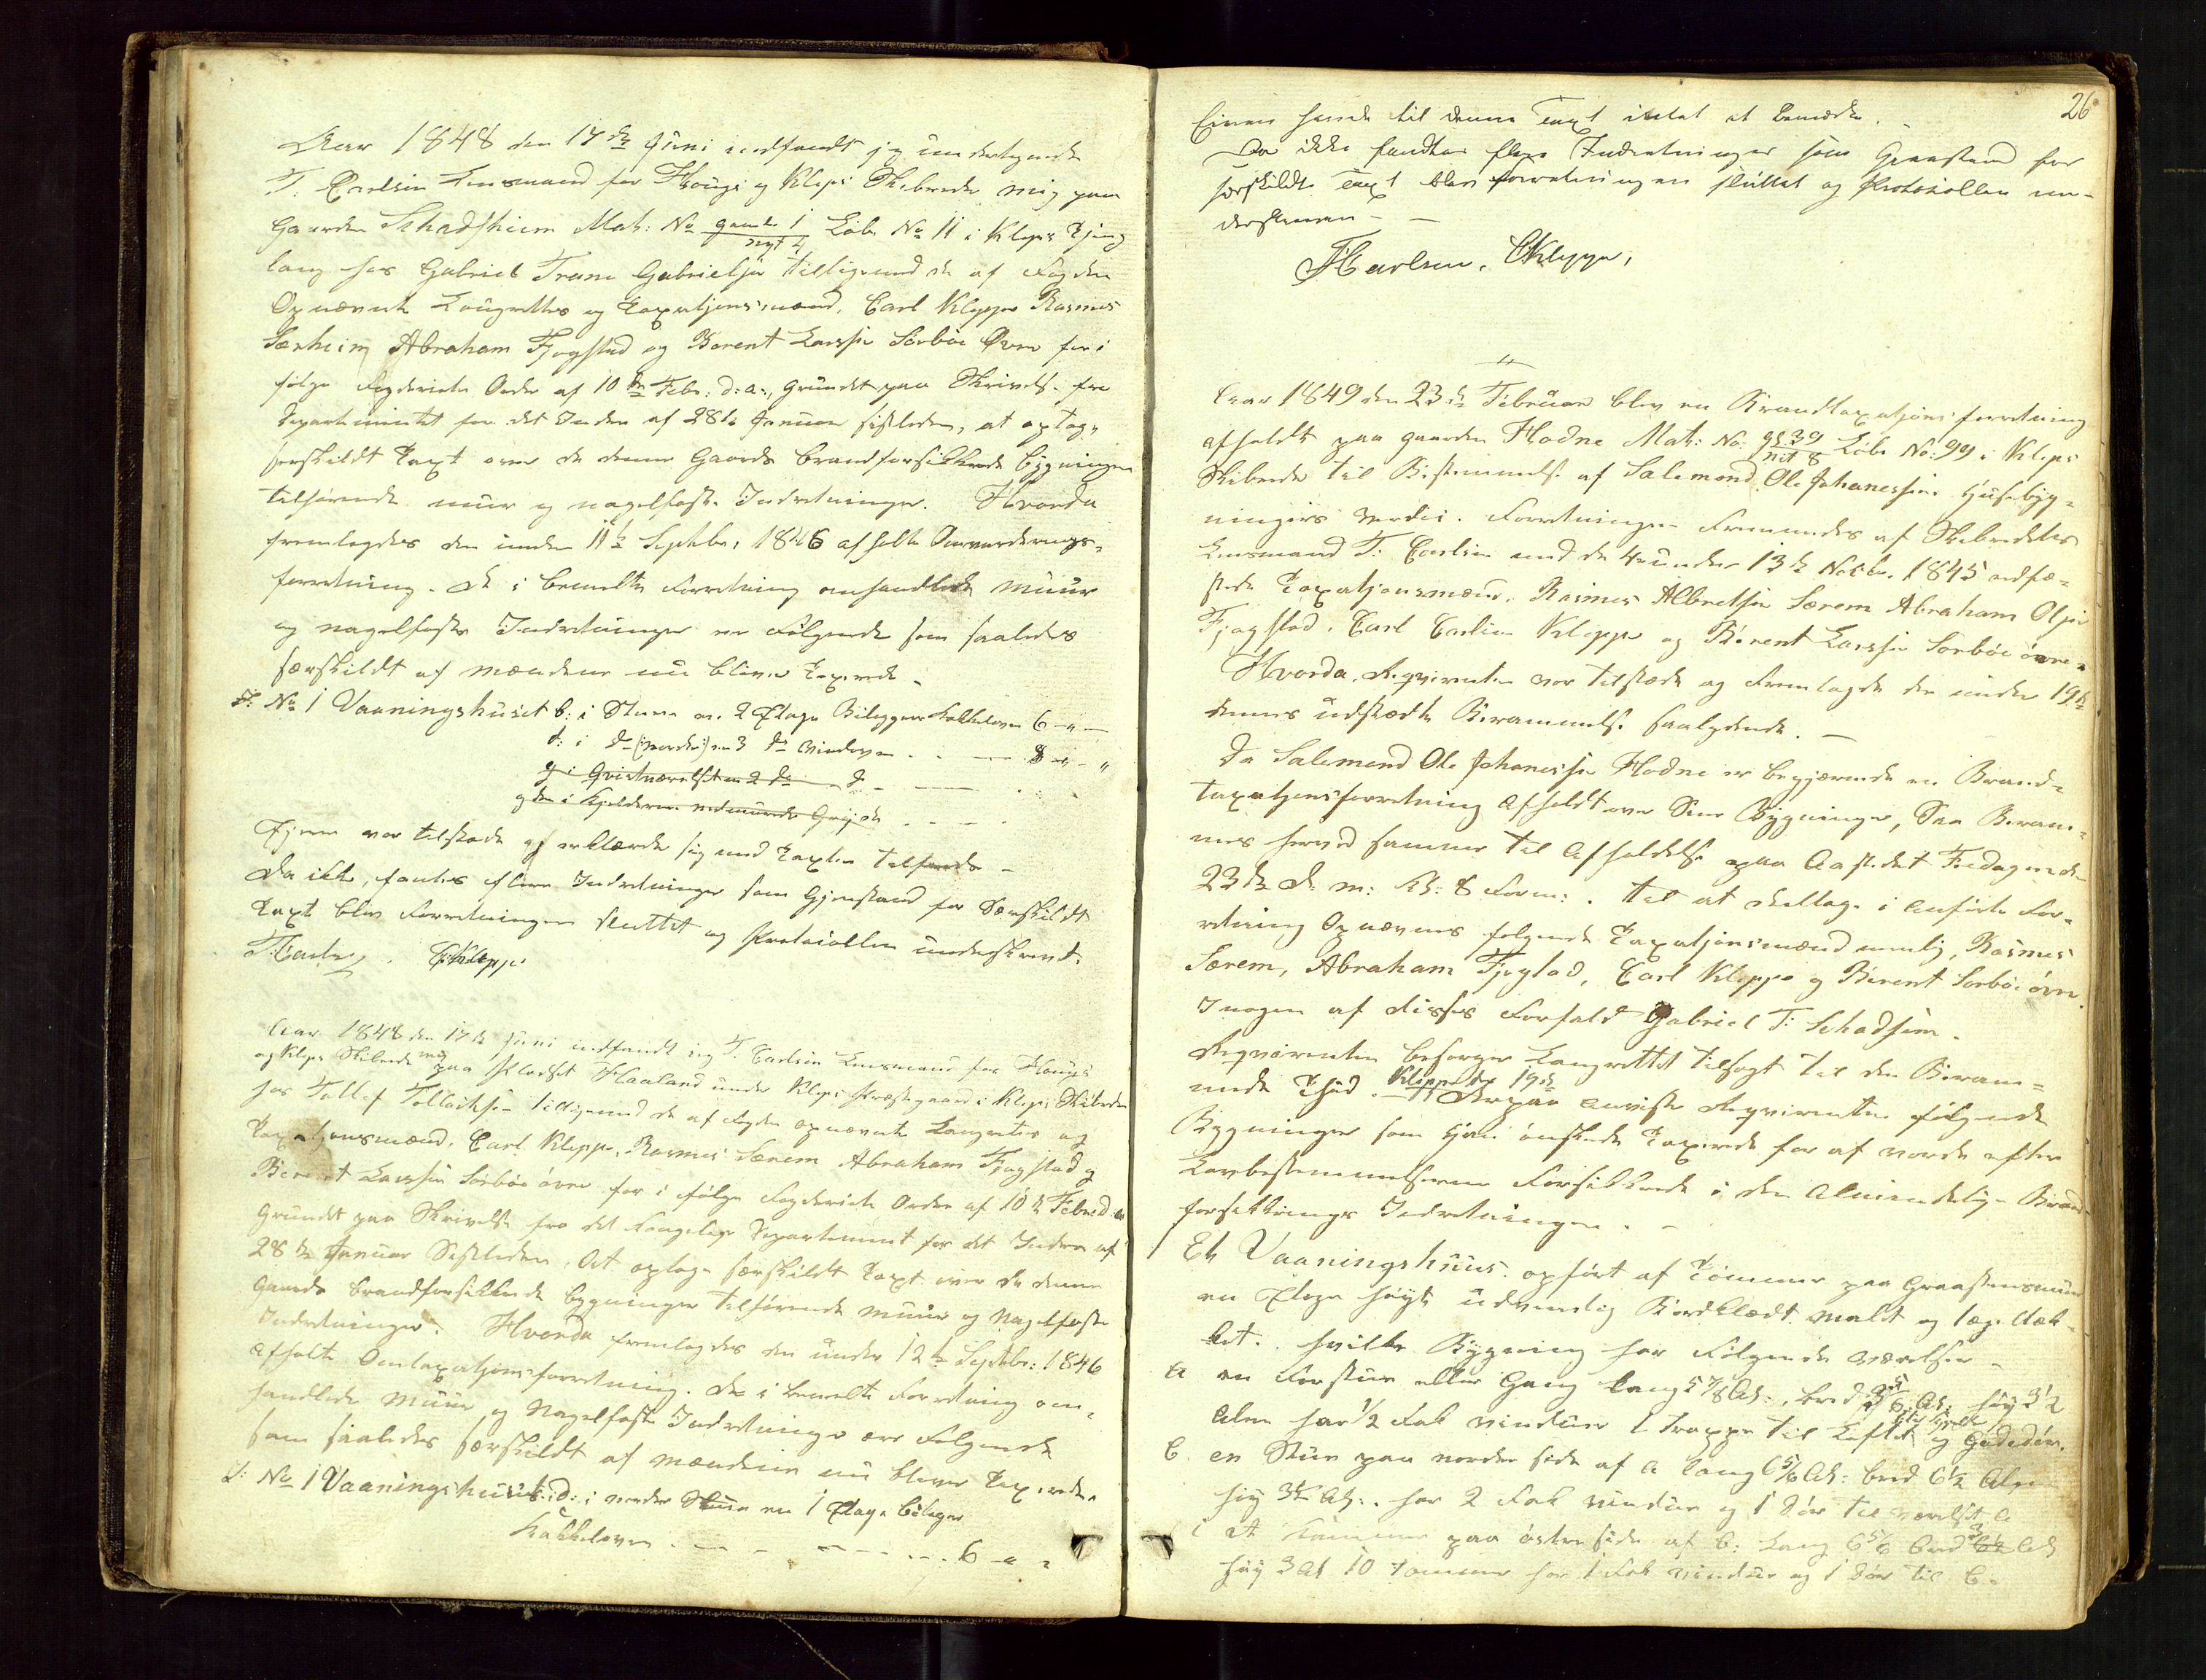 Aar 1848 den 17de Juni indfandt jeg undertegnede
T. Carlsen Lensmand for Houge og Kleps Skibrede mig paa
Gaarden Schadsheim Mat: No gamle 1 Løbe No 11 i Kleps Thing
nyt 4
laug hos Gabriel Trane Gabrielsen tilligemed de af Fogden
Opnævnte Laugrettes og Taxatjonsmænd, Carl Kleppe Rasmus
Særheim Abraham Fjogstad og Berent Larssen Sørbøe Øvre for i
følge Fogderiets Order af 10de Febr: d: a:, grundet paa Skrivelse fra
Departementet for det Indre af 28de Januar sidstleden, at optage
særskildt Taxt over de denne Gaards brandforsikkrede bygninger
tilhørende muur og nagelfaste Indretninger. Hvorda
fremlagdes den under 11te Septbr: 1846 afholte Omvurderings-
forretning. De i bemelte Forretning omhandlede Muur
og nagelfaste Indretninger er Følgende som saaledes
særskildt af mændene nu bliver Taxerede.
I: No 1 Vaaningshuset b: i Stuen en 2 Etages Bilegger Kakkelovn 6 - " -
d: i do (nordre) en 3 do Vindovn . . — 8 - " - "
g i Qvistværelset en 2 do do - — . .
og den i Kjelderen nedmurede Gryde . . - - .
Ejeren var tilstæde og erklærede sig med Taxten tilfreds -
Da ikke fantes flere Indretninger som Gjenstand for Særskildt
Taxt blev Forretningen sluttet og Protocollen underskrevet.
T. Carlsen. CKleppe
Aar 1848 den 17de Juni indfandt jeg T. Carlsen Lensmand for Houge
og Kleps Skibrede mig paa Pladset Haaland under Kleps Præstegaard i Kleps Skibrede
hos Tollef Tollachsen tilligemed de af Fogden opnævnte Laugrettes og
Taxatjonsmænd, Carl Kleppe, Rasmus Særem Abraham Fjogstad og
Berent Larssen Sørbøe øvre for i følge Fogderiets Order af 10de Febr: d: a:
grundet paa Skrivelse fra det Kongelige Departement for det Indre af
28de Januar Sistleden, At optage særskildt Taxt over de denne
Gaards brandforsikkrede bygninger tilhørende muur og Nagelfaste
Indretninger. Hvorda fremlagdes den under 12te Septbr: 1846
afholte Omtaxatjonsforretning. De i bemelte Forretning om-
handlede Muur og Nagelfaste Indretninger ere Følgende
som saaledes særskildt af mændene nu bliver Taxerede.
I: No 1 Vaaningshuset d: i nordre Stue en 1 Etages bilegger
Kakkelovn . — - — - . . . 6 - " -
26
Eieren havde til denne Taxt intet at bemærke. -
Da ikke fandtes flere Indretninger som Gjenstand for
særskildt Taxt blev forretningen sluttet og Protokollen un-
derskreven - —
TCarlsen. CKleppe,
Aar 1849 den 23de Februar blev en Brandtaxatjons forretning
afholdt paa gaarden Hodne Mat: No: gl 39 Løbe No: 99 i Kleps
nyt 8
Skibrede til Bestemmelse af Salemond Ole Johanesens Husebyg-
ningers værdi. Forretningen Fremmedes af Skibredets
Lensmand T: Carlsen med de 4 under 13de Novbr. 1845 edfæ-
stede Taxatjonsmænd, Rasmus Albretsen Særem Abraham Olsen
Fjogstad, Carl Carlsen Kleppe og Berent Larssen Sørbøe øvre
Hvorda, Reqvirenten var tilstæde og Fremlagde den under 19de
dennes udstædte Berammelse saalydende. —
Da Salemond Ole Johanesen Hodne er begjærende en Brand-
taxatjonsforretning afholdt over Sine Bygninger, Saa Beram-
mes herved samme til Afholdelse paa Aastedet Fredag den
23de d: m: Kl: 8 Form: . til at deltage i anførte For-
retning Opnævnes følgende Taxatjonsmænd nemlig, Rasmus
Særem, Abraham Fjogstad, Carl Kleppe og Berent Sørbøe øvre.
I nogen af disses Forfald Gabriel T: Schadsem.
Reqvirenten besørger Laugrettet tilsagt til den Beram-
mede Thid. Kleppe den 19de Derpaa anviste Reqvirenten følgende
Bygninger som han ønskede Taxerede for af vorde efter
Lovbestemmelserne Forsikkrede i den Almindelige Brand-
forsikkrings Indretningen. -
1 Et Vaaningshuus opført af Tømmer paa Graastensmuur
en Etage høyt udvendig Bordklædt malt og tægeltæk-
ket. hvilken Bygning har Følgende værelser -
a en Forstue eller Gang lang 5 7/8 Al:, bred 2 5/6 Al: høy 3 1/2
Alen har 1/2 Fak vinduer 1 trappe til Loftet og Gadedør.
b en Stue paa nordre side af a lang 6 5/6 Al: bred 6 1/2 Alen
høy 3 1/2 Al: . har 2 Fak vinduer og 1 dør til værelset a
c et Kammer paa østre side af b: Lang 6 5/6 bred Al
høy 3 Al 10 tommer har 1 Fak vindue og 1 dør til b.